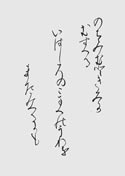 のちみむときみか
むすへる
いはしろのこまつかうれを
またみけむかも